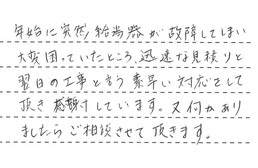 年始に突然給湯器が故障してしまい
大変困っていたところ、迅速な見積りと
翌日の工事と言う素早い対応をして
頂き感謝しています。又何かあり
ましたらご相談させて頂きます。